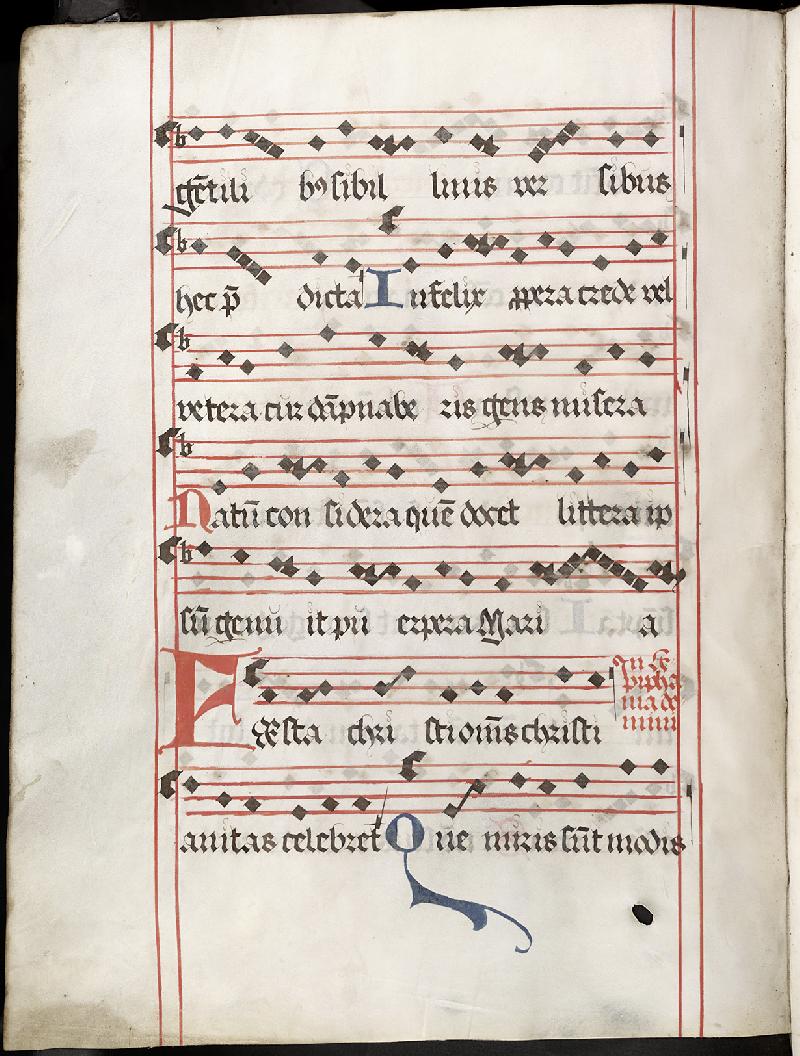 gētili bꝰ sibil linis ver sibus
hec p̄ dicta Infelix ꝓpera crede vel
vetera cur dāpnabe ris gens misera
Natū con sidera quē docet littera ip
sū genu it pu erpera Mari a
F esta chri sti om̄is christi
In
anitas celebret Que miris sūt modis